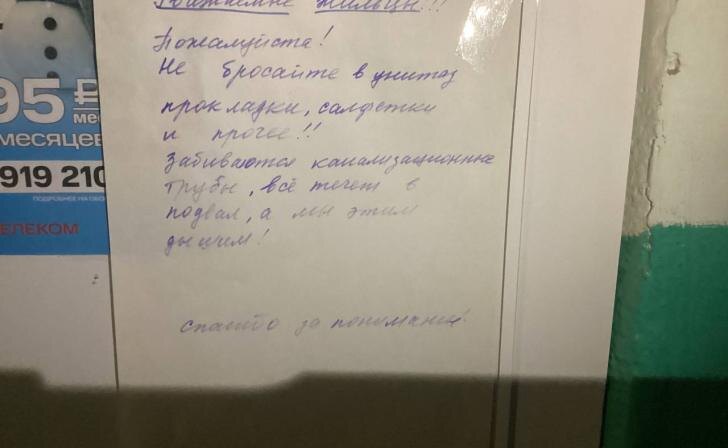 Уважаемые жильцы!!
Пожалуйста!
Не бросайте в унитаз
прокладки, салфетки
и прочее!!
Забиваются канализационные
трубы, всё течет в
подвал, а мы этим
дышим!
спасибо за понимание!
95 ₽
мес
месяцев
919 210
ПОДРОБНЕЕ НА
ЕЛЕКОМ